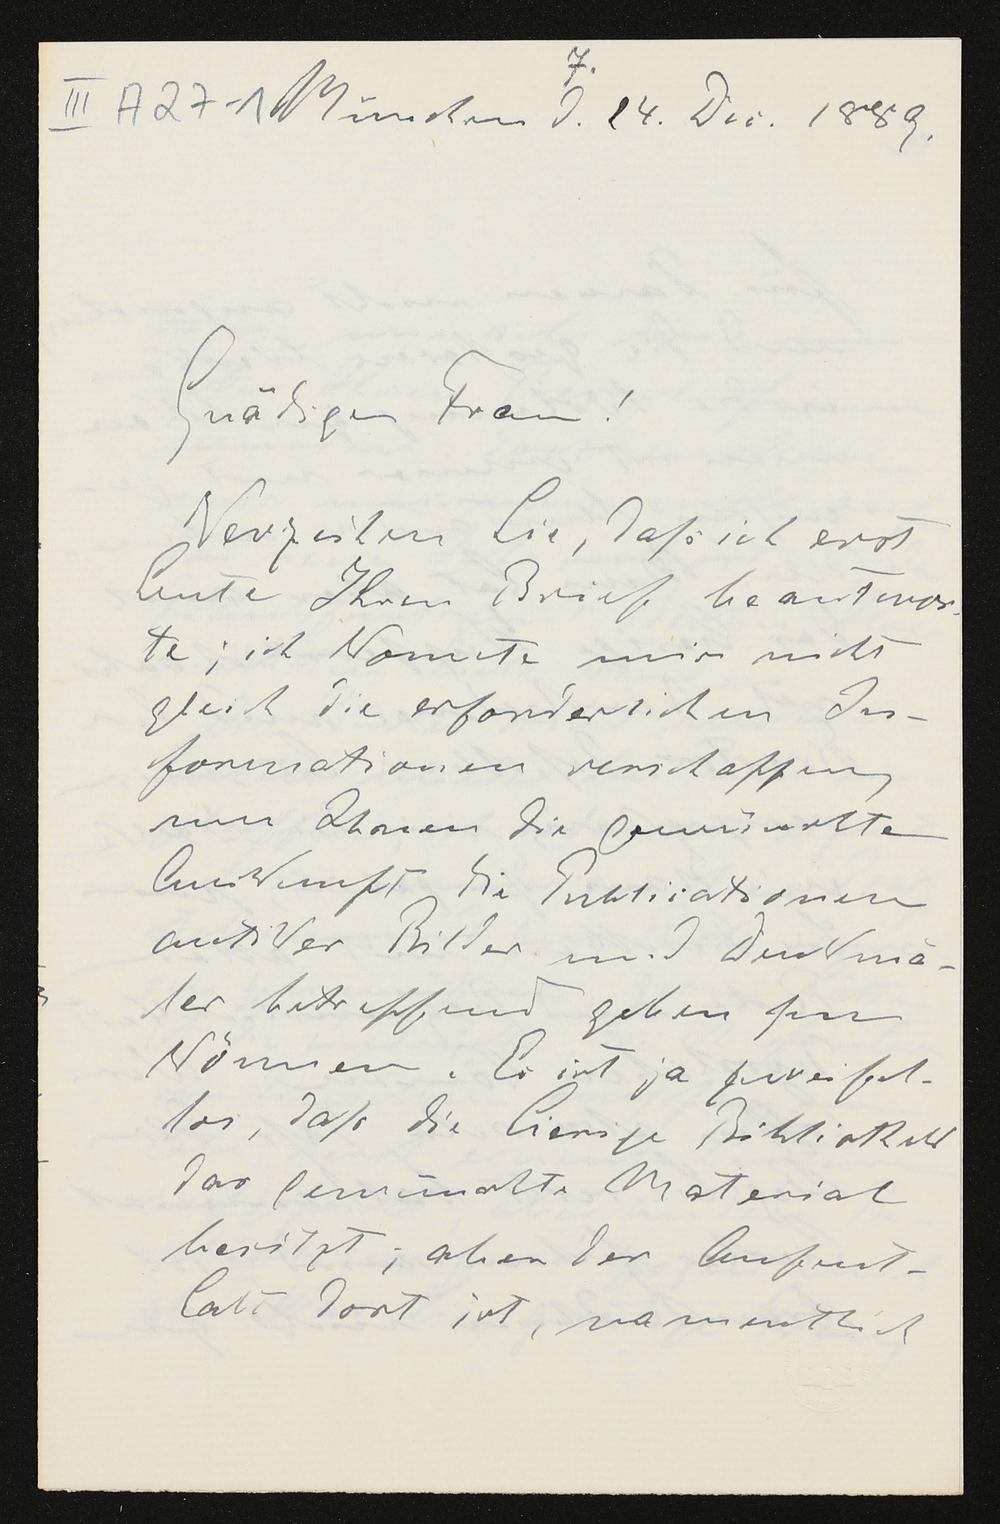 7.
III A27-1 München d. 14. Dec. 1889.
Gnädige Frau!
Verzeihen Sie, daß ich erst
heute Ihren Brief beantwor-
te; ich konnte mir nicht
gleich die erforderlichen In-
formationen verschaffen,
um Ihnen die gewünschte
Auskunft die Publicationen
antiker Bilder und Denkmä-
ler betreffend geben zu
können. Es ist ja zweifel-
los, daß die hiesige Bibliothek
das gewünschte Material
besitzt; aber der Aufent-
halt dort ist, namentlich